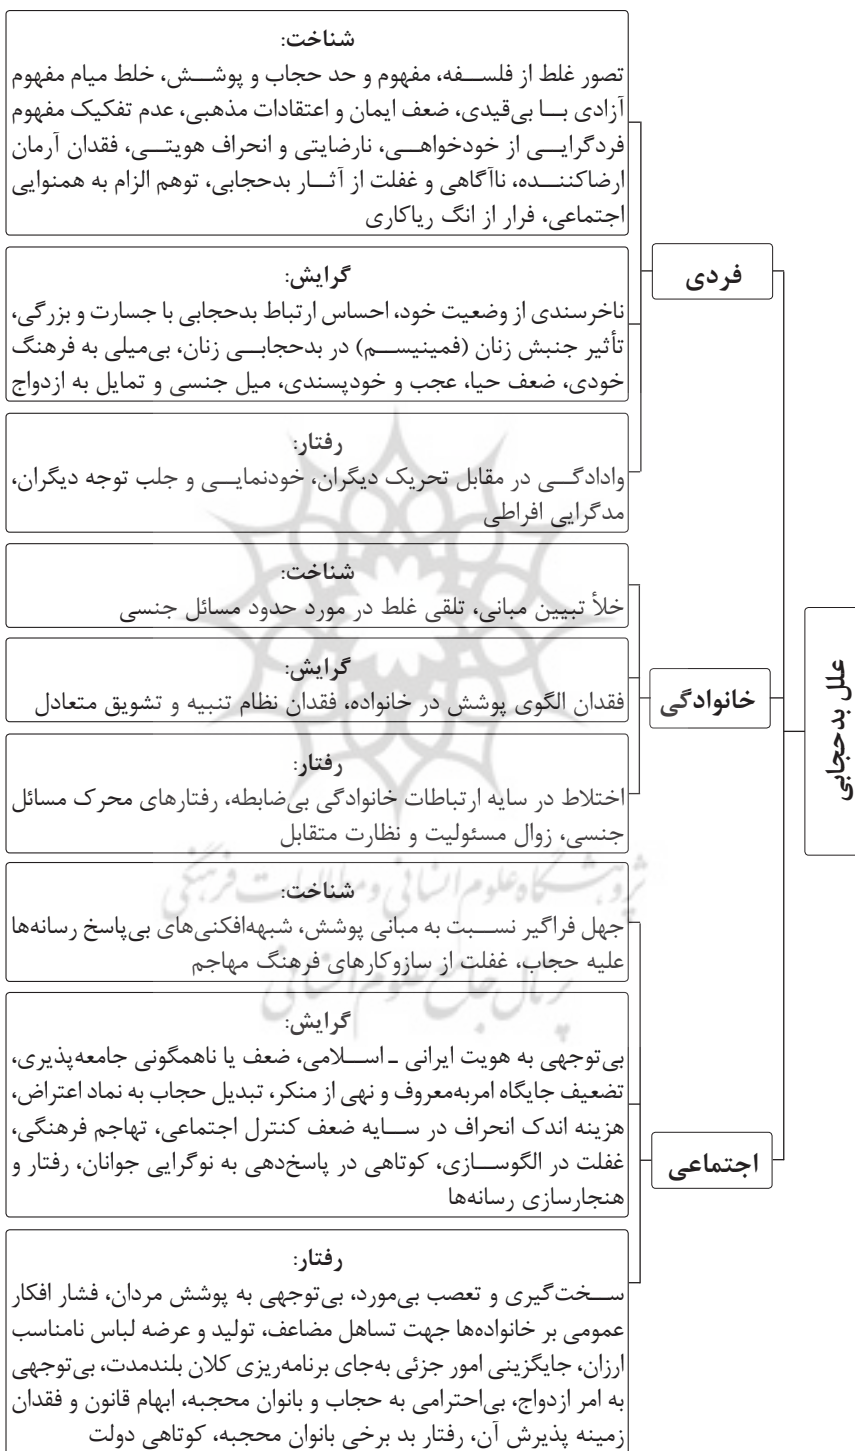 علل بدحجابی
فردی
شناخت:
تصور غلط از فلسفه، مفهوم و حد حجاب و پوشش، خلط میام مفهوم
آزادی با بی‌قیدی، ضعف ایمان و اعتقادات مذهبی، عدم تفکیک مفهوم
فردگرایی از خودخواهی، نارضایتی و انحراف هویتی، فقدان آرمان
ارضاکننده، ناآگاهی و غفلت از آثار بدحجابی، توهم الزام به همنوایی
اجتماعی، فرار از انگ ریاکاری
گرایش:
ناخرسندی از وضعیت خود، احساس ارتباط بدحجابی با جسارت و بزرگی،
تأثیر جنبش زنان (فمینیسم) در بدحجابی زنان، بی‌میلی به فرهنگ
خودی، ضعف حیا، عجب و خودپسندی، میل جنسی و تمایل به ازدواج
رفتار:
وادادگی در مقابل تحریک دیگران، خودنمایی و جلب توجه دیگران،
مدگرایی افراطی
خانوادگی
شناخت:
خلأ تبیین مبانی، تلقی غلط در مورد حدود مسائل جنسی
گرایش:
فقدان الگوی پوشش در خانواده، فقدان نظام تنبیه و تشویق متعادل
رفتار:
اختلاط در سایه ارتباطات خانوادگی بی‌ضابطه، رفتارهای محرک مسائل
جنسی، زوال مسئولیت و نظارت متقابل
پژوهشگاه علوم انسانی و مطالعات فرهنگی
پرتال جامع علوم انسانی
اجتماعی
شناخت:
جهل فراگیر نسبت به مبانی پوشش، شبهه‌افکنی‌های بی‌پاسخ رسانه‌ها
علیه حجاب، غفلت از سازوکارهای فرهنگ مهاجم
گرایش:
بی‌توجهی به هویت ایرانی ـ اسلامی، ضعف یا ناهمگونی جامعه‌پذیری،
تضعیف جایگاه امربه‌معروف و نهی از منکر، تبدیل حجاب به نماد اعتراض،
هزینه اندک انحراف در سایه ضعف کنترل اجتماعی، تهاجم فرهنگی،
غفلت در الگوسازی، کوتاهی در پاسخ‌دهی به نوگرایی جوانان، رفتار و
هنجارسازی رسانه‌ها
رفتار:
سخت‌گیری و تعصب بی‌مورد، بی‌توجهی به پوشش مردان، فشار افکار
عمومی بر خانواده‌ها جهت تساهل مضاعف، تولید و عرضه لباس نامناسب
ارزان، جایگزینی امور جزئی به‌جای برنامه‌ریزی کلان بلندمدت، بی‌توجهی
به امر ازدواج، بی‌احترامی به حجاب و بانوان محجبه، ابهام قانون و فقدان
زمینه پذیرش آن، رفتار بد برخی بانوان محجبه، کوتاهی دولت